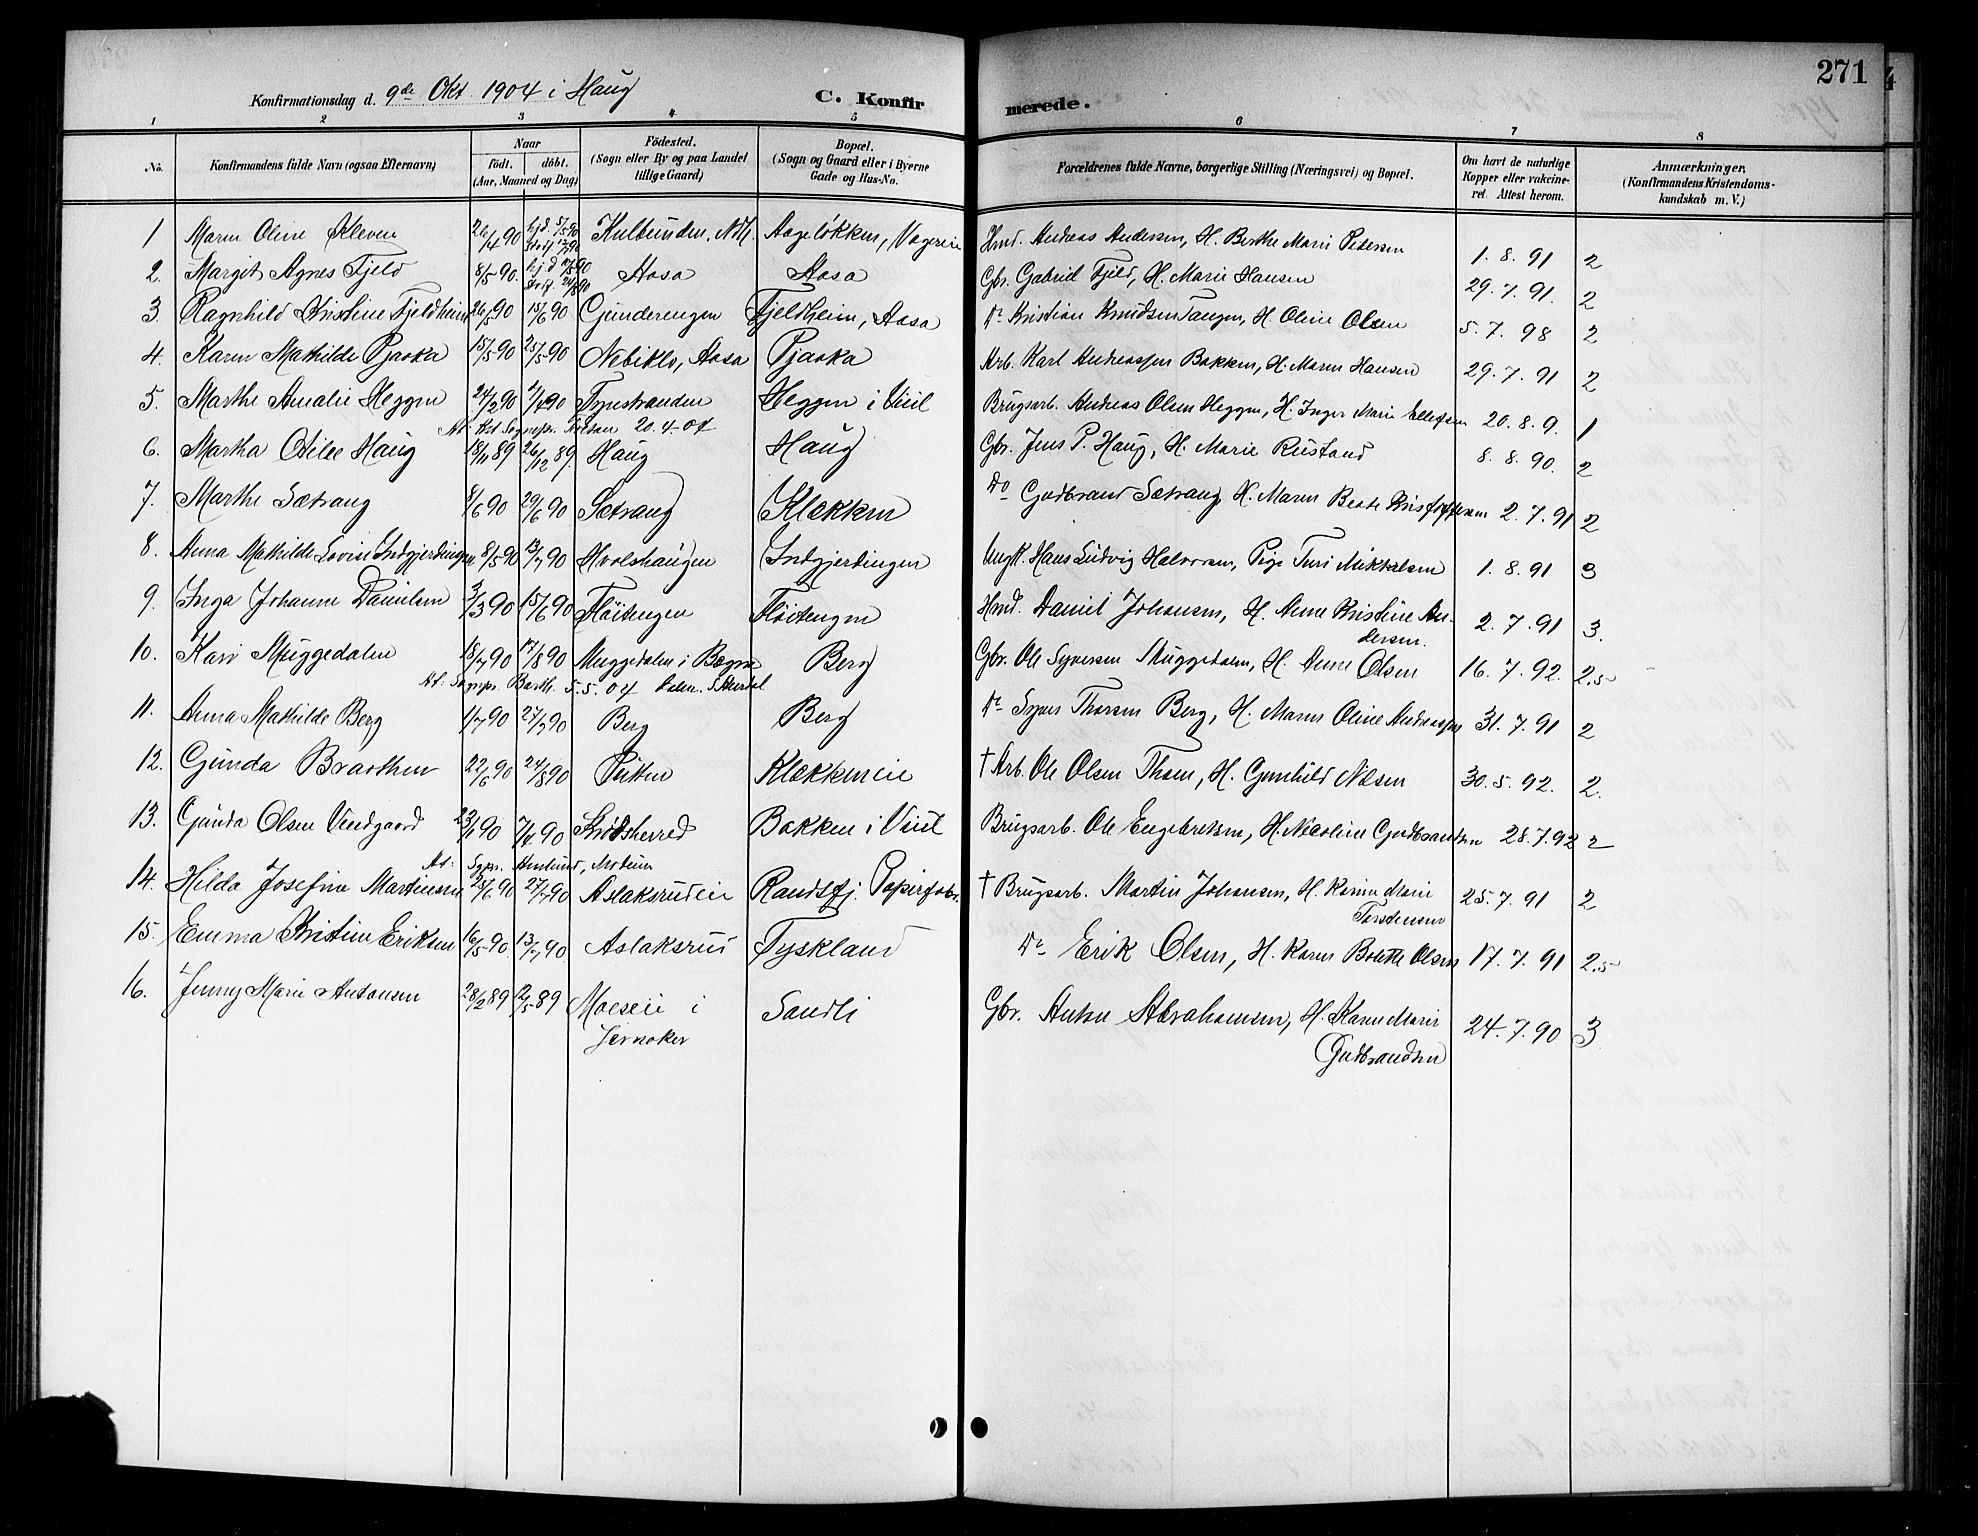 271
Konfirmationsdag d. 9de Okt. 1904 i Haug C. Konfirmerede.
1 2 3 4 5 6 7 8
No. Konfirmandens fulde Navn (ogsaa Efternavn) Naar født. døbt. (Aar, Maaned og Dag) Fødested. (Sogn eller By og paa Landet tillige Gaard) Bopæl. (Sogn og Gaard eller i Byerne Gade og Hus-No. Forældrenes fulde Navne, borgerlige Stilling (Næringsvei) og Bopæl. Om havt de naturlige Kopper eller vakcineret. Attest herom. Anmærkninger. (Konfirmandens Kristendomskundskab m. V.)
1 Maren Oline Kleven 26/4 90 hj.d. 5/5 90 Aageløkken, Hmd. Andreas Andersen, H. Berthe Marie Pedersen 1. 8. 91 2
2. Margit Agnes Fjeld 8/5 90. hj.d. Aasa Aasa Gbr. Gabriel Fjeld, H. Marie Hansen 29. 7. 91. 2
3. Ragnhild Kristine Fjeldheim 26/5 90 15/6 90 Gunderengen Fjeldheim, Aasa Do Kristian Knudsen Tangen, H. Oline Olsen 5. 7. 98 2
4. Karen Mathilde Pjaaka 15/5 90 25/5 90 Nebiklo, Aasa Pjaaka Arb. Karl Andreassen Bakken, H. Maren Hansen 29. 7. 91 2
5. Marthe Amalie Heggen 24/2 90 7/4 90 Tyristranden Heggen i Viul Brugsarb. Andreas Olsen Heggen, H. Inger Marie Ellefsen 20. 8. 9. 1
At. Kst Sognepr. 20. 4 - 04
6. Martha Otilie Haug 18/11 89 26/12 89. Haug Haug Gbr. Jens P. Haug, H. Marie Rustand 8. 8. 90. 2
7. Marthe Sætrang 8/6 90 29/6 90 Sætrang Klækken Do Gudbrand Sætrang H. Maren Beate Kristoffersen 2. 7. 91 2
8. Anna Mathilde Lovise Indgjerdingen 8/5 90 13/7 90 Hvolshaugen Indgjerdingen Ungk. Hans Ludvig Halvorsen, Pige Turi Mikkelsen 1. 8. 91 3
9. Inga Johanne Danielsen 3/3 90 15/6 90 Fløitengen Fløitengen Hmd. Daniel Johansen, H. Anne Kristine An-
dersen. 2. 7. 91 3.
10. Kari Muggedalen 18/7 90 17/8 90 Muggedalen i Bægna Berg Gbr. Ole Syversen Muggedalen, H. Anne Olsen 16. 7. 92. 2.5
At. Sognpr. Barth. 5. 5. 04 dalen. S. Aurdal
11. Anna Mathilde Berg 1/7 90 27/7 90 Berg Berg Do Syver Thorsen Berg, H. Maren Oline Andreassen 31. 7. 91 2
12. Gunda Braathen 22/6 90 24/8 90 Putten Klækkeneie † Arb. Ole Olsen Thoen, H. Gunhild Nilsen 30. 5. 92. 2.
13. Gunda Olsen Vendgaard 23/1 90 7/4 90 Krødsherred Bakken i Viul Brugsarb. Ole Engebretsen, H. Nicoline Gudbrandsen 28. 7. 92 2
At: Sgpr. Amlund, Modum
14. Hilda Josefine Martinsen 24/6 90 27/7 90 Aslaksrudeie Randsfj. Papirfabr. † Brugsarb. Martin Johansen, H. Karine Marie
Torstensen 25. 7. 91 2
15. Emma Kristine Eriksen 16/5 90. 13/7 90 Aslaksrud Tyskland Do Erik Olsen, H. Karen Bolette Olsen 17. 7. 91 2.5
16. Jenny Marie Antonsen 28/2 89 12/5 89 Moeseie i Sandli Gbr. Anton Abrahamsen, H. Karen Marie
Jevnaker Gudbrandsen 24. 7. 90 3